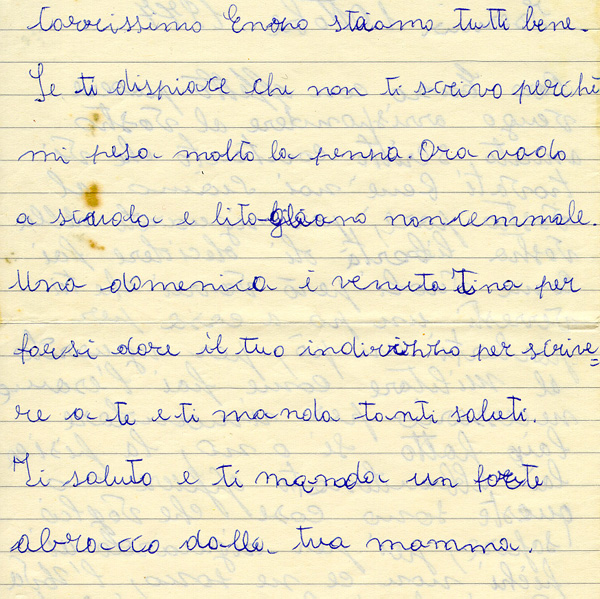 Carissimo Enono stiamo tutti bene.
Se ti dispiace che non ti scrivo perchè
mi pesa molto la penna. Ora vado
a scuola e l'ito non cemmale.
Una domenica è venuta Tina per
farsi dare il tuo indirihho per scrive=
re a te e ti manda tanti saluti.
Ti saluto e ti manda un forte
abracco dalla tua mamma.